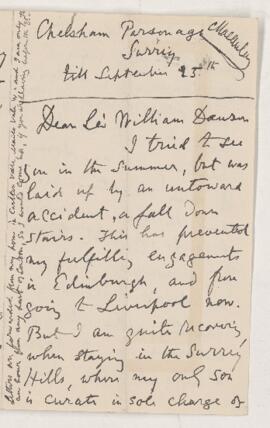 Chelsham Parsonage
Surrey
till September 25th
Dear Sir William Dawson
I tried to see
you in the Summer, but was
laid up by an untoward
accident, a fall down
stairs. This has prevented
my fulfilling engagements
in Edinburgh, and from
going to Liverpool now.
But I am quite recovering
when staying in the Surrey
Hills, where my only son
is curate in sole charge of
letters are forwarded from my home in